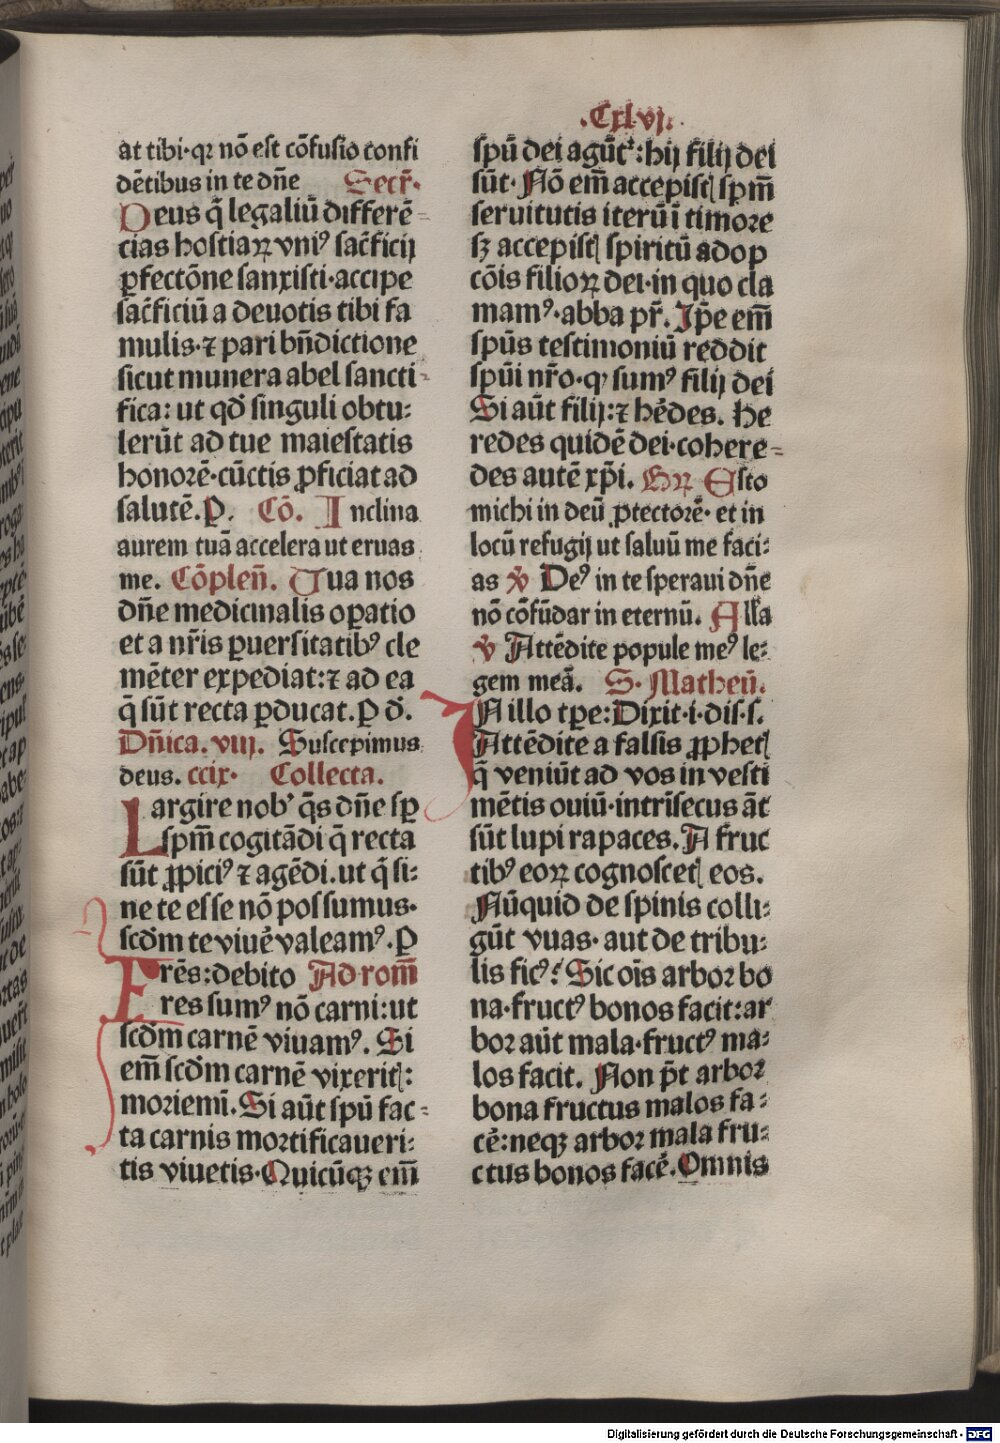 .Cxlvj.
at tibi·qꝛ nõ est cõfusio confi
dẽtibus in te dñe Secr̃·
Deus q̃ legaliũ differẽ⸗
cias hostiaꝝ vniꝰ sac̃ficij
ꝑfectõne sanxisti·accipe
sac̃ficiũ a deuotis tibi fa
mulis·⁊ pari bñdictione
sicut munera abel sancti⸗
fica: ut qd̃ singuli obtu⸗
lerũt ad tue maiestatis
honorẽ·cũctis ꝓficiat ad
salutẽ.P. Cõ. Inclina
aurem tuã accelera ut eruas
me. Cõpleñ. Tua nos
dñe medicinalis oꝑatio
et a nr̃is ꝑuersitatibꝰ cle
mẽter expediat:⁊ ad ea
q̃ sũt recta ꝑducat.P d̃.
Dñica. viij. Suscepimus
deus. ccix· Collecta.
Largire nobʼ q̃s dñe sꝑ
spm̃ cogitãdi q̃ recta
sũt ꝓpiciꝰ ⁊ agẽdi.ut q̃ si⸗
ne te esse nõ possumus·
scd̃m te viuẽ valeamꝰ.P
Frẽs:debito Ad rom̃
res sumꝰ nõ carni:ut
scd̃m carnẽ viuamꝰ. Si
em̃ scd̃m carnẽ vixeritꝭ:
moriemĩ.Si aũt spũ fac⸗
ta carnis mortificaueri⸗
tis viuetis·Quicũqꝫ em̃
spũ dei agũtʼ:hij filij dei
sũt· Nõ em̃ accepistꝭ spm̃
seruitutis iterũ ĩ timore
sꝫ accepistꝭ spiritũ adop
cõis filioꝝ dei·in quo cla
mamꝰ·abba pr̃. Ip̃e em̃
spũs testimoniũ reddit
spũi nr̃o·qʼ sumꝰ filij dei
Si aũt filij:⁊ hẽdes. He
redes quidẽ dei·cohere⸗
des autẽ xp̃i. Gꝝ Esto
michi in deũ ꝓtectorẽ· et in
locũ refugij ut saluũ me faci⸗
as ℣ Deꝰ in te speraui dñe
nõ cõfũdar in eternũ. Alla
℣ Attẽdite popule meꝰ le⸗
gem meã. S· Matheũ.
IN illo tꝑe:Dixit·i·dis·s.
Attẽdite a falsis ꝓphetꝭ
q̃ veniũt ad vos in vesti
mẽtis ouiũ·intrĩsecus ãt
sũt lupi rapaces. A fruc
tibꝰ eoꝝ cognoscetꝭ eos.
Nũquid de spinis colli⸗
gũt vuas· aut de tribu⸗
lis ficꝰ? Sic oĩs arbor bo
na·fructꝰ bonos facit:ar
bor aũt mala·fructꝰ ma⸗
los facit. Non p̃t arbor
bona fructus malos fa⸗
cẽ:neqꝫ arbor mala fru⸗
ctus bonos facẽ.Omnis
Digitalisierung gefördert durch die Deutsche Forschungsgemeinschaft - DFG